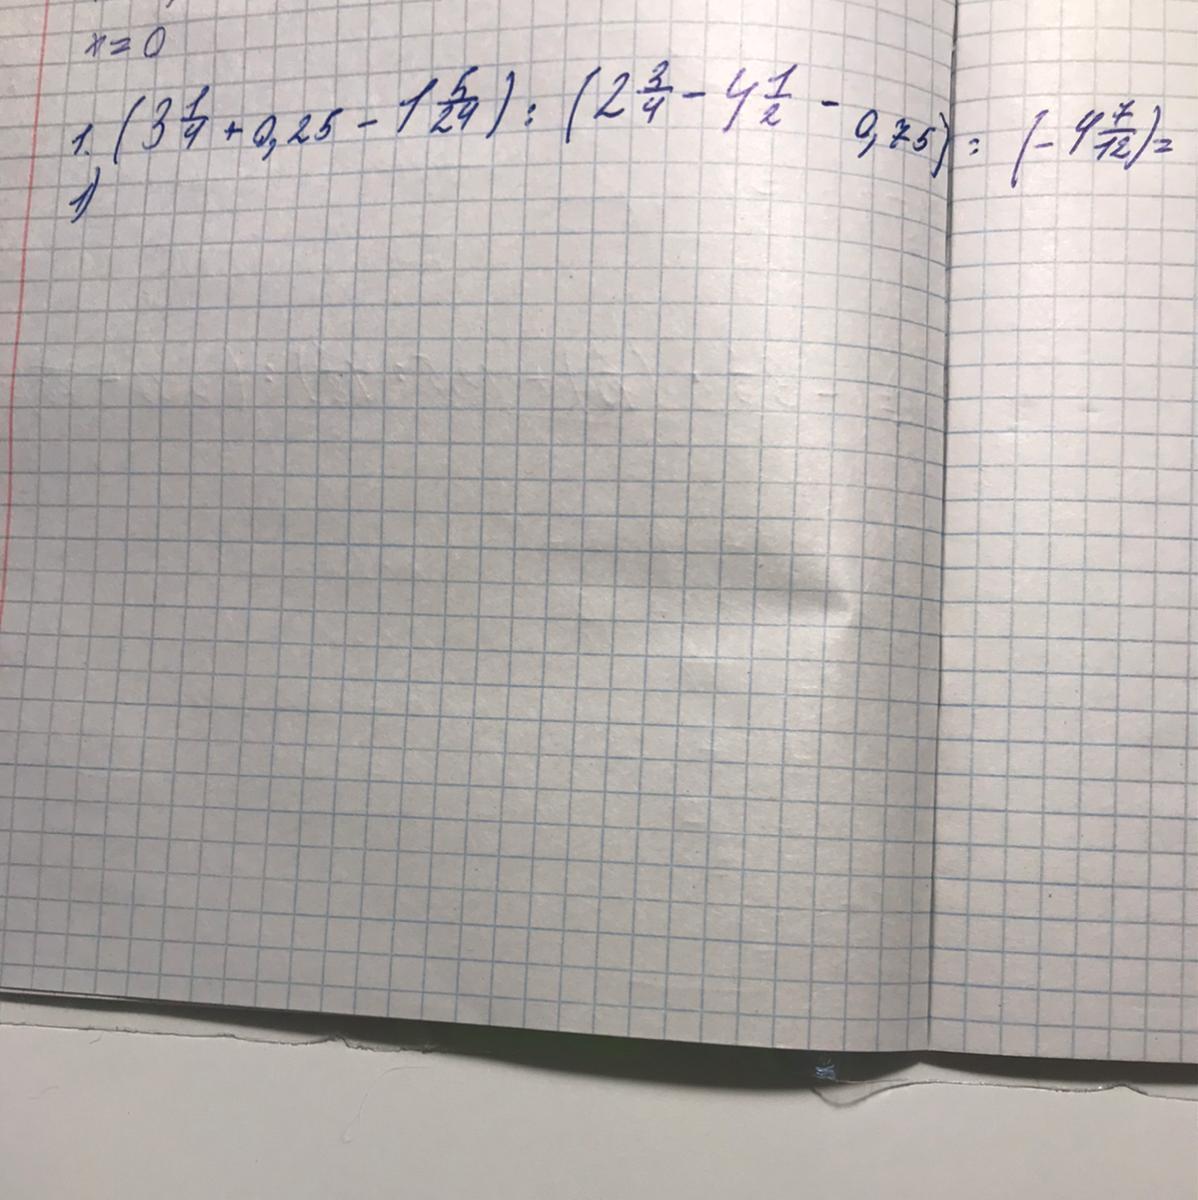 x = 0
1. (3 1/4 + 0,25 - 1 5/24) : (2 3/4 - 4 1/2 - 0,75) : (- 4 7/12) =
1)